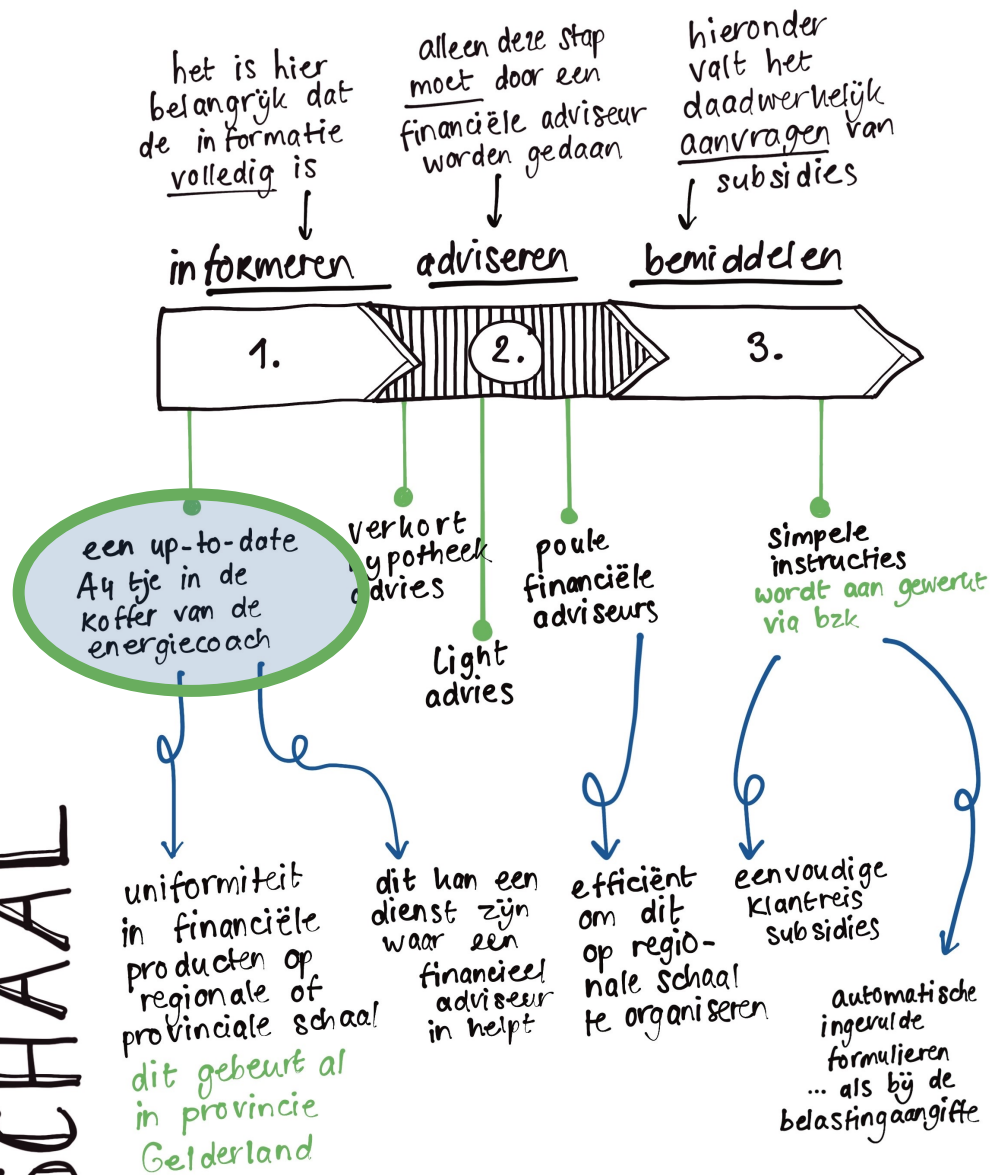 het is hier
belangrijk dat
de informatie
volledig is
alleen deze stap
moet door een
financiële adviseur
worden gedaan
hieronder
valt het
daadwerkelijk
aanvragen van
subsidies
informeren
adviseren
bemiddelen
1.
2.
3.
een up-to-date
A4 tje in de
koffer van de
energiecoach
verkort
ypotheek
dvies
light
advies
poule
financiële
adviseurs
simpele
instructies
wordt aan gewerkt
via bzk
uniformiteit
in financiële
producten op
regionale of
provinciale schaal
dit gebeurt al
in provincie
Gelderland
dit kan een
dienst zijn
waar een
financieel
adviseur
in helpt
efficiënt
om dit
op regio-
nale schaal
te organiseren
eenvoudige
klantreis
subsidies
automatische
ingevulde
formulieren
... als bij de
belastingaangifte
SCHAAL